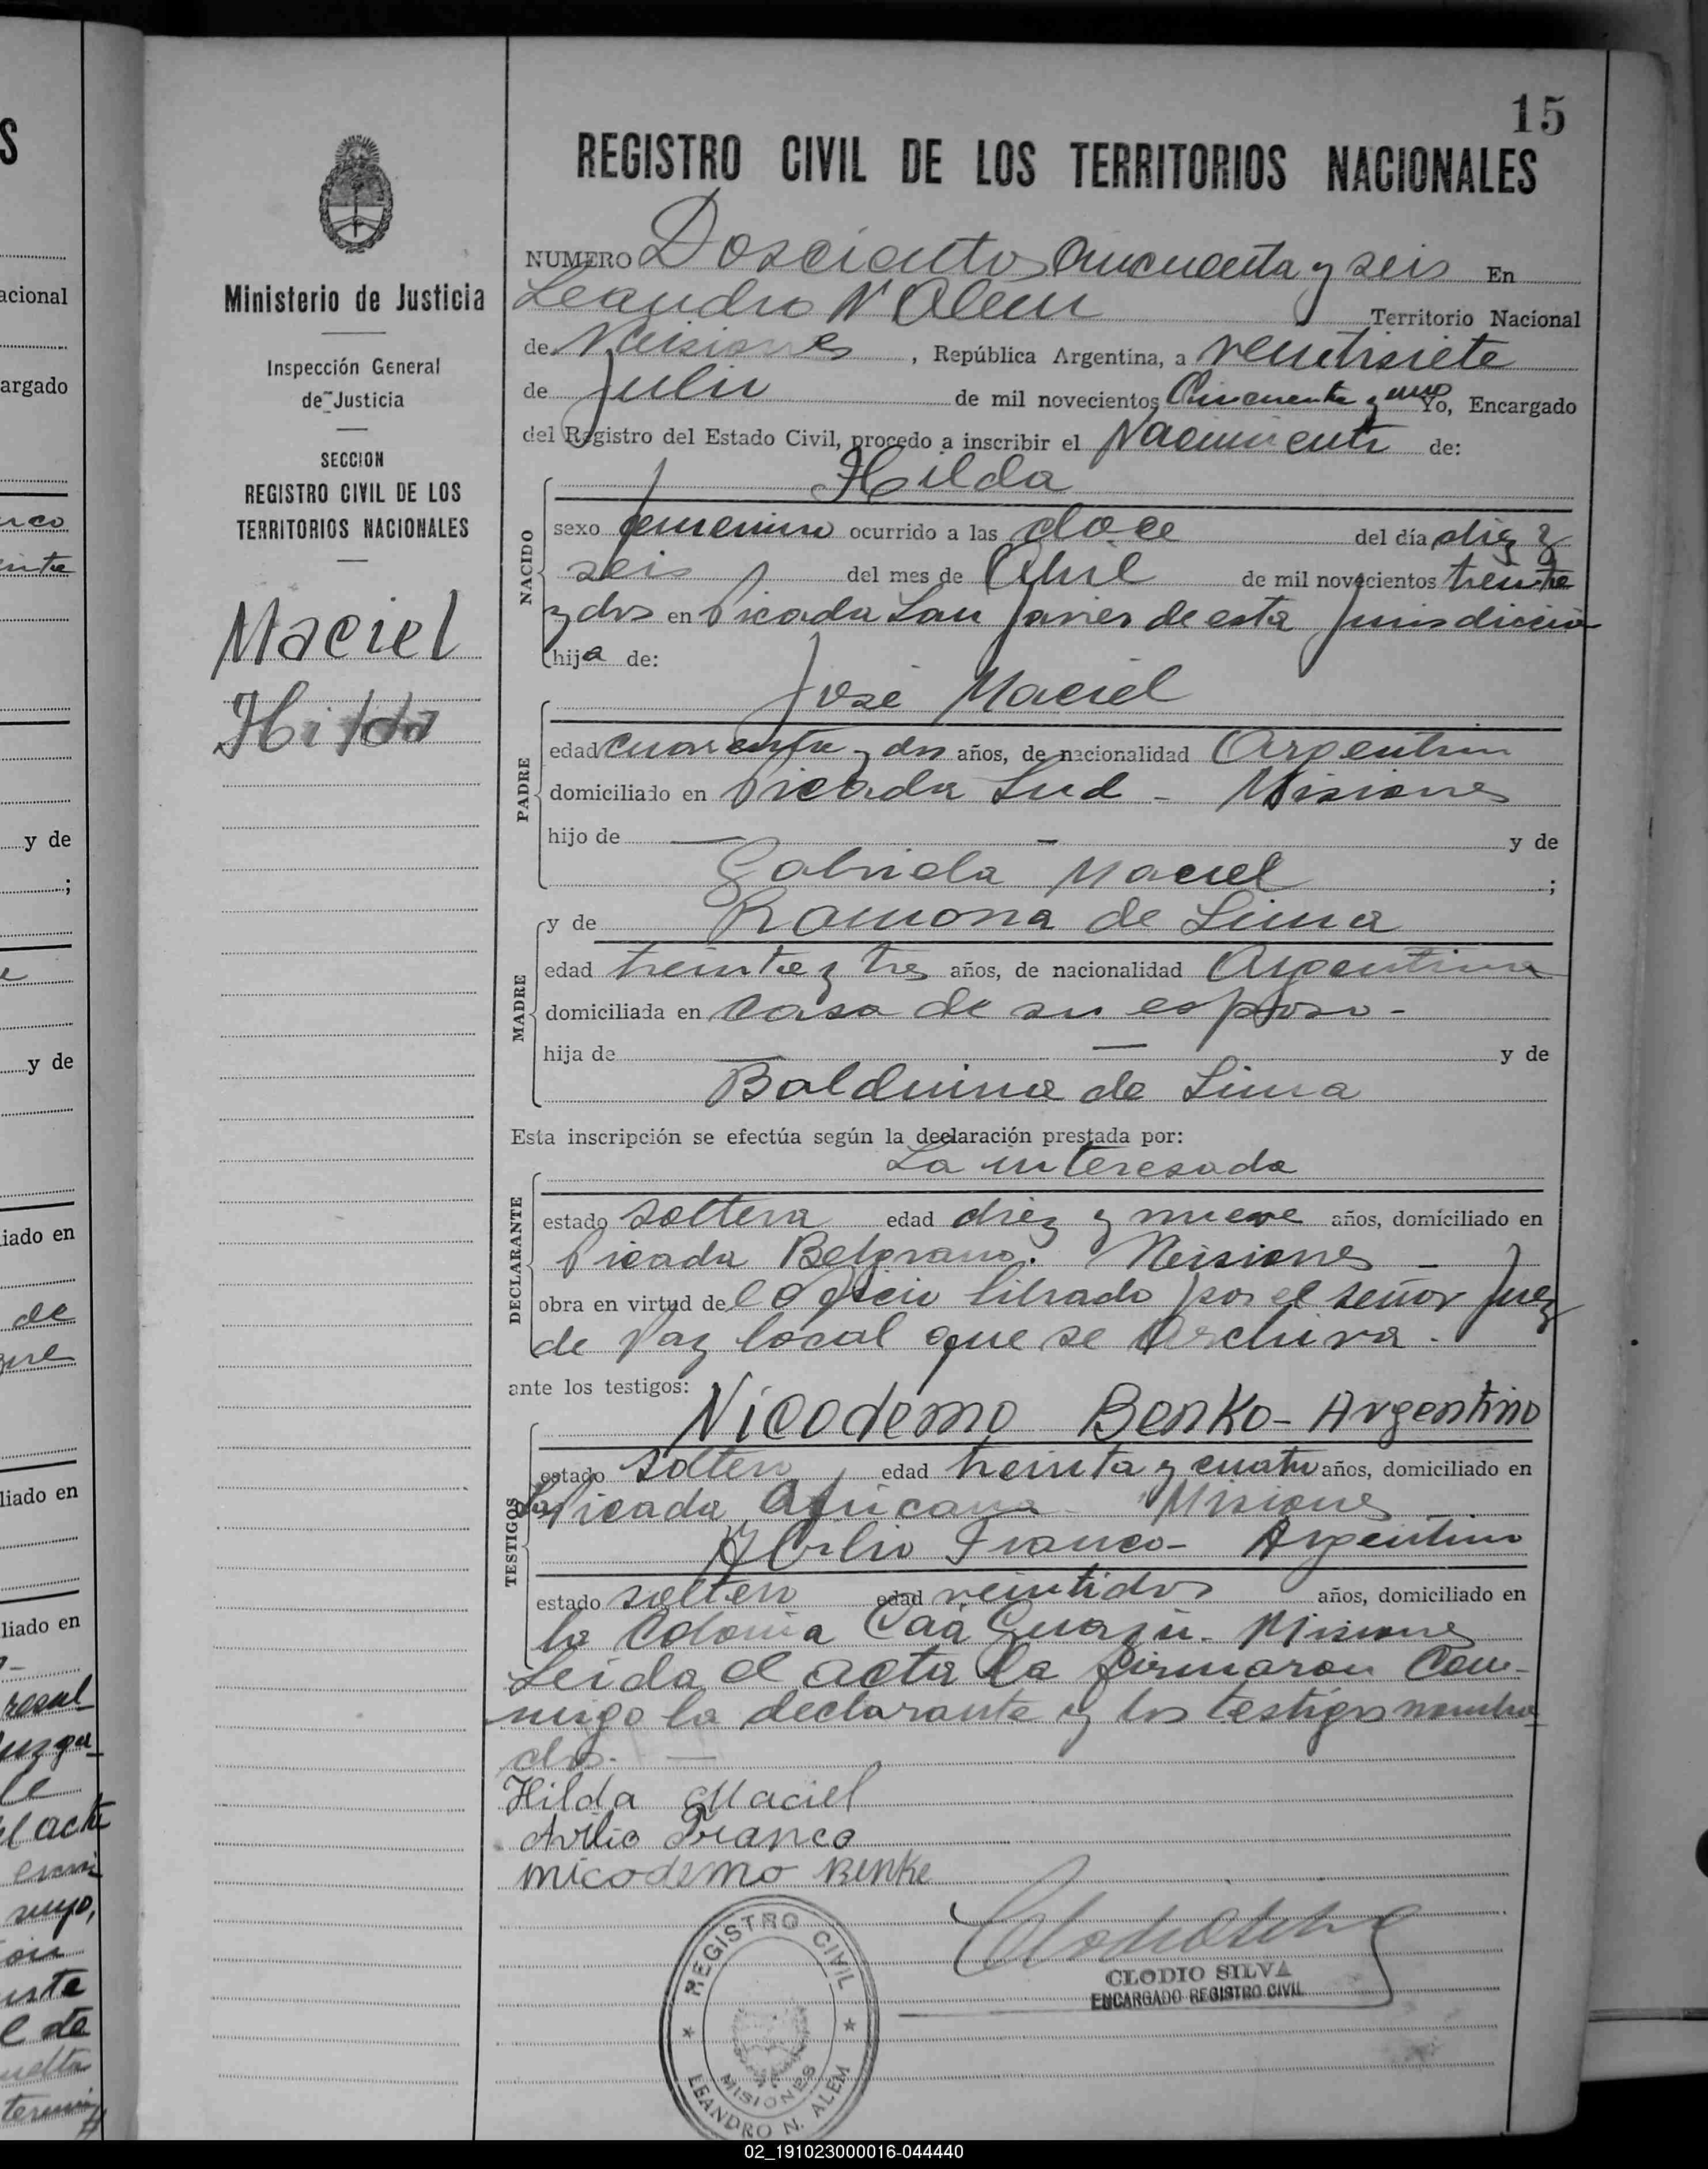 15
REGISTRO CIVIL DE LOS TERRITORIOS NACIONALES
Ministerio de Justicia
Inspección General
de Justicia
SECCION
REGISTRO CIVIL DE LOS
TERRITORIOS NACIONALES
Maciel
Hilda
NUMERO Doscientos Cincuenta y seis En
Leandro N Alem Territorio Nacional
de Misiones, República Argentina, a veintisiete
de Julio de mil novecientos Cincuenta y uno Yo, Encargado
del Registro del Estado Civil, procedo a inscribir el Nacimiento de:
Hilda
NACIDO
sexo femenino ocurrido a las doce del día diez y
seis del mes de Abril de mil novecientos treinta
y dos en Picada San Javier de esta Jurisdicción
hija de:
José Maciel
PADRE
edad cuarenta y dos años, de nacionalidad Argentino
domiciliado en Picada Sud - Misiones
hijo de — — y de
Gabriela Maciel ;
y de Ramona de Lima
MADRE
edad treinta y tres años, de nacionalidad Argentina
domiciliada en casa de su esposo -
hija de — — y de
Balduina de Lima
Esta inscripción se efectúa según la declaración prestada por:
La interesada
DECLARANTE
estado soltera edad diez y nueve años, domiciliado en
Picada Belgrano. Misiones -
obra en virtud del oficio librado por el señor Juez
de Paz local que se Archiva.
ante los testigos:
Nicodemo Benko - Argentino
TESTIGOS
estado soltero edad treinta y cuatro años, domiciliado en
la Picada Africana Misiones
Abilio Franco - Argentino
estado soltero edad veintidos años, domiciliado en
la Colonia Caá Guazú. Misiones
Leida el acta la firmaron Con-
migo la declarante y los testigos nombra-
dos. —
Hilda Maciel
Avilio Franco
nicodemo Benke
CLODIO SILVA
ENCARGADO REGISTRO CIVIL
REGISTRO CIVIL
MISIONES
LEANDRO N. ALEM
S
acional
argado
y de
;
y de
iado en
de
liado en
liado en
el acta
suyo,
l de
02_191023000016-044440